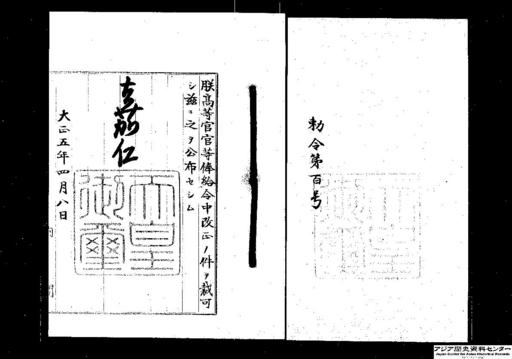 勅令第百号
朕高等官官等俸給令中改正ノ件ヲ裁可
シ玆ニ之ヲ公布セシム
嘉仁
天皇御璽
大正五年四月八日
内閣
アジア歴史資料センター
Japan Center for Asian Historical Records